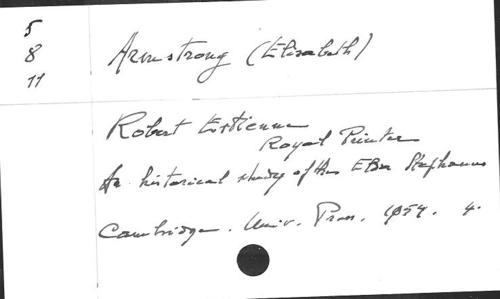 5
8
11
Armstrong (Elisabeth)
Robert Estienne
Royal Printer
An historical study of the Elder Stephanus
Cambridge. Univ. Press. 1954. 4.